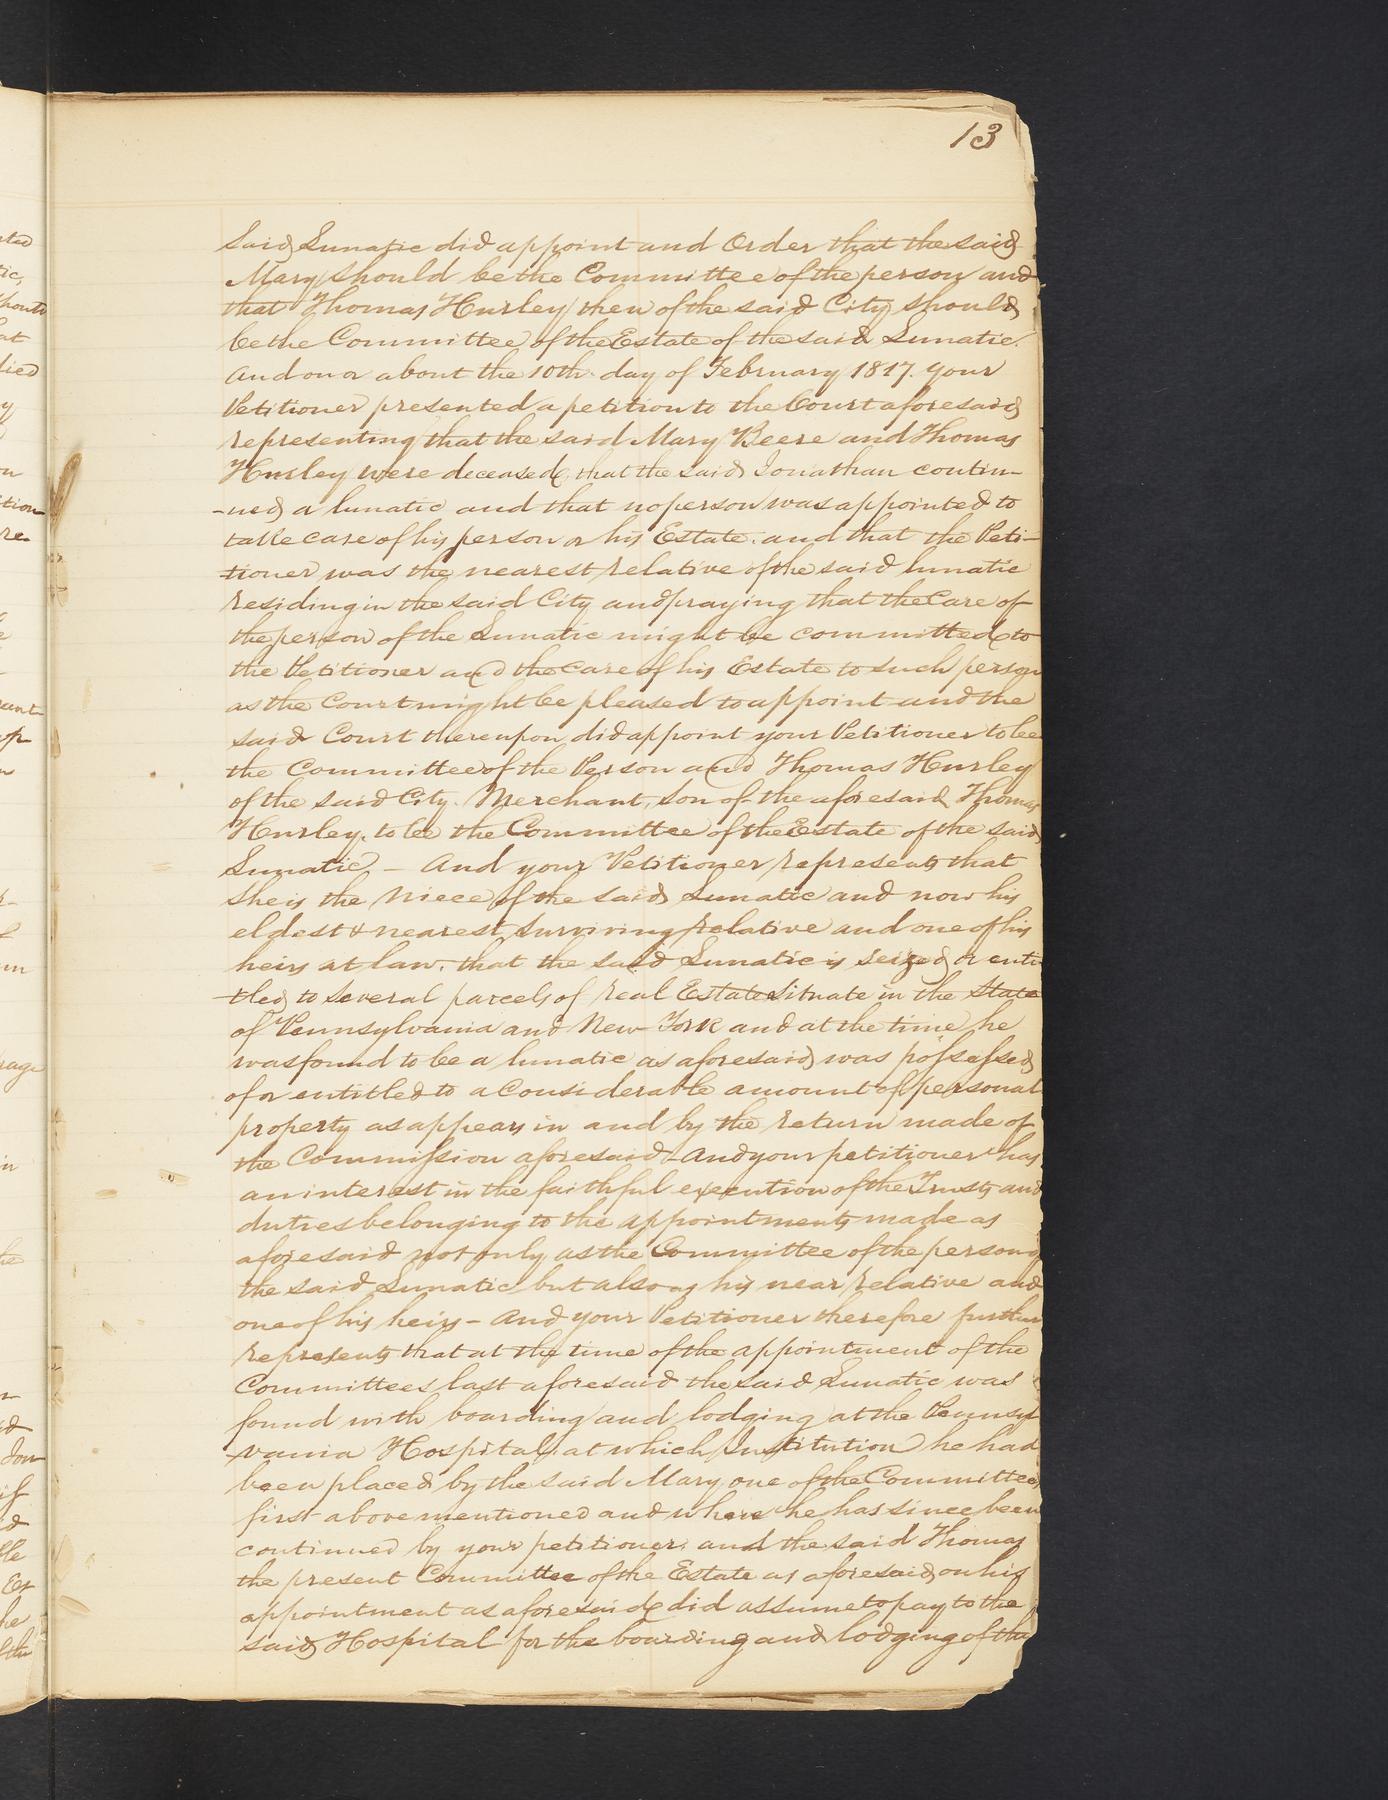 13
Said Lunatic did appoint and Order that the said
Mary should be the Committee of the person and
that Thomas Hurley then of the said City should
be the Committee of the Estate of the said Lunatic.
And on or about the 10th day of February 1817. your
Petitioner presented a petition to the Court aforesaid
representing that the said Mary Beere and Thomas
Hurley were deceased, that the said Jonathan contin-
-ued a lunatic and that no person was appointed to
take care of his person or his Estate. and that the Peti-
tioner was the nearest relative of the said lunatic
residing in the said City and praying that the Care of
the person of the Lunatic might be committed to
the Petitioner and the care of his Estate to such person
as the Court might be pleased to appoint and the
said Court thereupon did appoint your Petitioner to be
the Committee of the Person and Thomas Hurley
of the said City. Merchant, son of the aforesaid Thomas
Hurley, to be the Committee of the Estate of the said
Lunatic – And your Petitioner represents that
she is the Niece of the said Lunatic and now his
eldest & nearest surviving relative and one of his
heirs at law. that the said Lunatic is seized or enti
tled to several parcels of real Estate situate in the State
of Pennsylvania and New-York and at the time he
was found to be a lunatic as aforesaid was possessed
of or entitled to a Considerable amount of personal
property as appears in and by the return made of
the Commission aforesaid – And your petitioner has
an interest in the faithful execution of the Trusts and
duties belonging to the appointments made as
aforesaid not only as the Committee of the person of
the said Lunatic but also as his near relative and
one of his heirs – And your Petitioner therefore further
represents that at the time of the appointment of the
Committees last aforesaid the said Lunatic was
found with boarding and lodging at the Pennsyl
vania Hospital, at which Institution he had
been placed by the said Mary one of the Committees
first above mentioned and where he has since been
continued by your petitioner. and the said Thomas
the present Committee of the Estate as aforesaid on his
appointment as aforesaid did assume to pay to the
said Hospital for the boarding and lodging of the